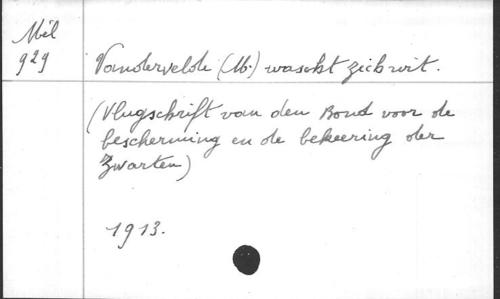 Mél
929
Vandervelde (M.) wascht zich wit.
(Vlugschrift van den Bond voor de
bescherming en de bekeering der
Zwarten)
1913.